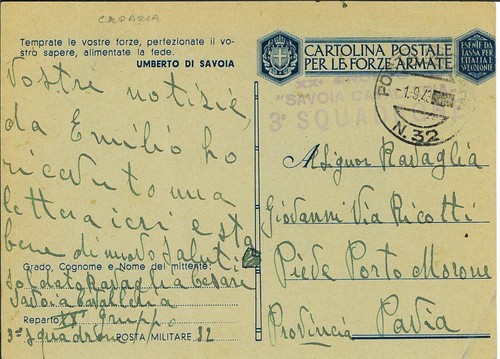 CROAZIA
Temprate le vostre forze, perfezionate il vo-
stro sapere, alimentate la fede.
UMBERTO DI SAVOIA
Vostre notizie,
da Emilio ho
ricevuto una
lettera ieri e sta
bene di nuovo saluti
Grado, Cognome e Nome del mittente:
Soldato Ravaglia Cesare
Savoia Cavalleria
Reparto XX Gruppo
3º Squadrone POSTA MILITARE 32
CARTOLINA POSTALE
PER LE FORZE ARMATE
ESENTE DA
TASSA PER
L'ITALIA E
VL'ZIONE
XX
"SAVOIA CA
3º SQUAD
PO
-1.9.43
N. 32
Al Signor Ravaglia
Giovanni Via Ricotti
Pieve Porto Morone
Provincia Pavia